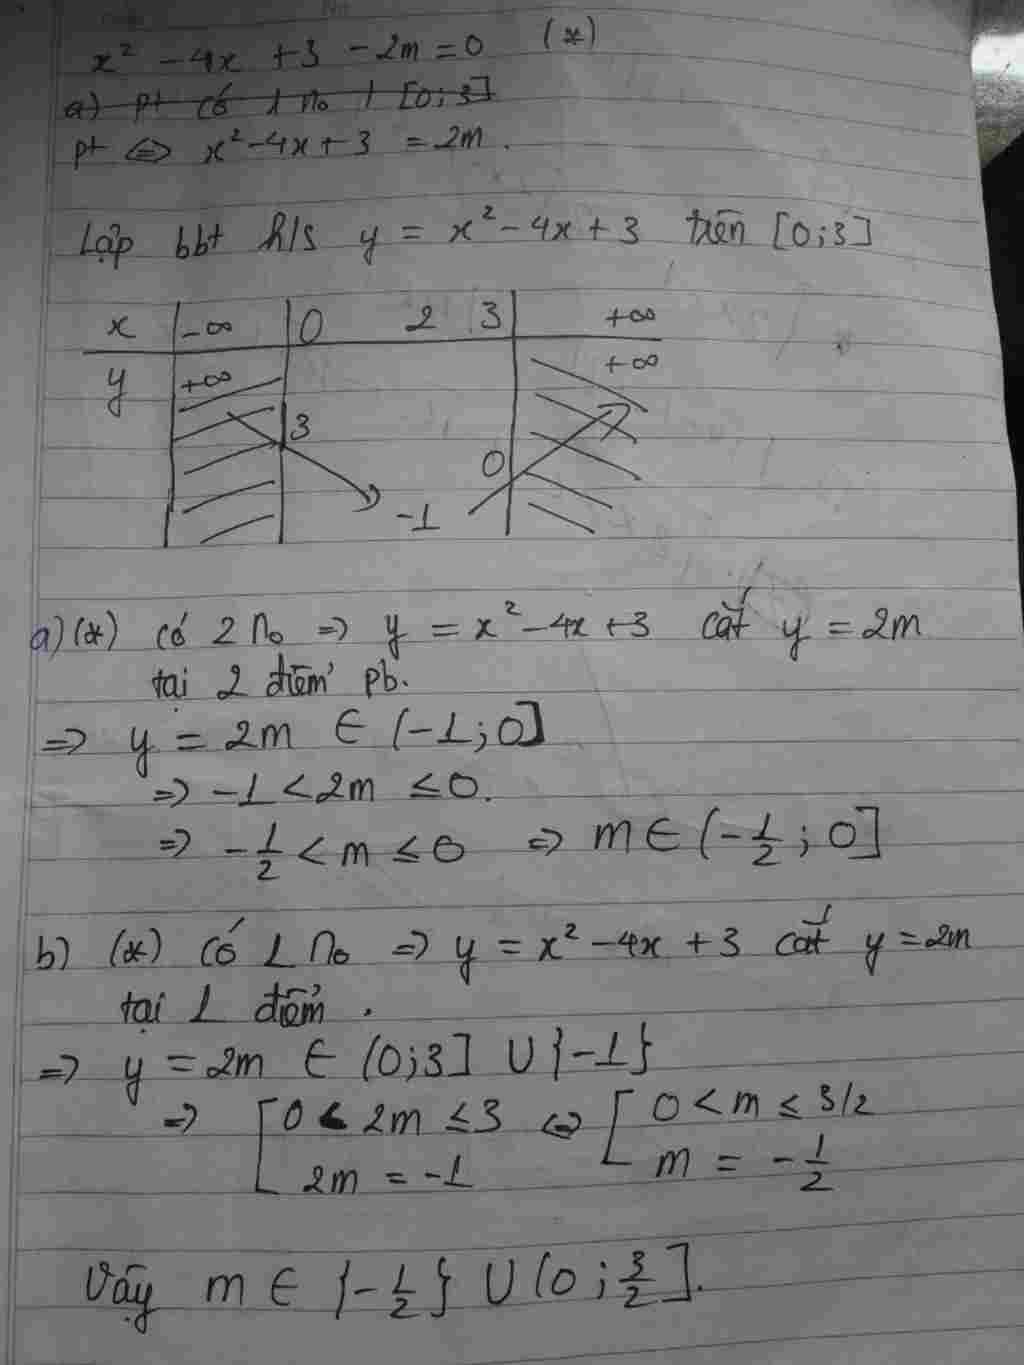 x² - 4x + 3 - 2m = 0 (*)
a) pt có 1 no t [0;3]
pt <=> x² - 4x + 3 = 2m.
Lập bbt h/s y = x² - 4x + 3 trên [0;3]
x -∞ 0 2 3 +∞
y +∞ +∞
3
0
-1
a) (*) có 2 no => y = x² - 4x + 3 cắt y = 2m
tại 2 điểm pb.
=> y = 2m ∈ (-1;0]
=> -1 < 2m ≤ 0.
=> -1/2 < m ≤ 0 => m ∈ (-1/2; 0]
b) (*) có 1 no => y = x² - 4x + 3 cắt y = 2m
tại 1 điểm.
=> y = 2m ∈ (0;3] ∪ {-1}
=> [ 0 < 2m ≤ 3 <=> [ 0 < m ≤ 3/2
2m = -1 m = -1/2
Vậy m ∈ {-1/2} ∪ (0; 3/2].